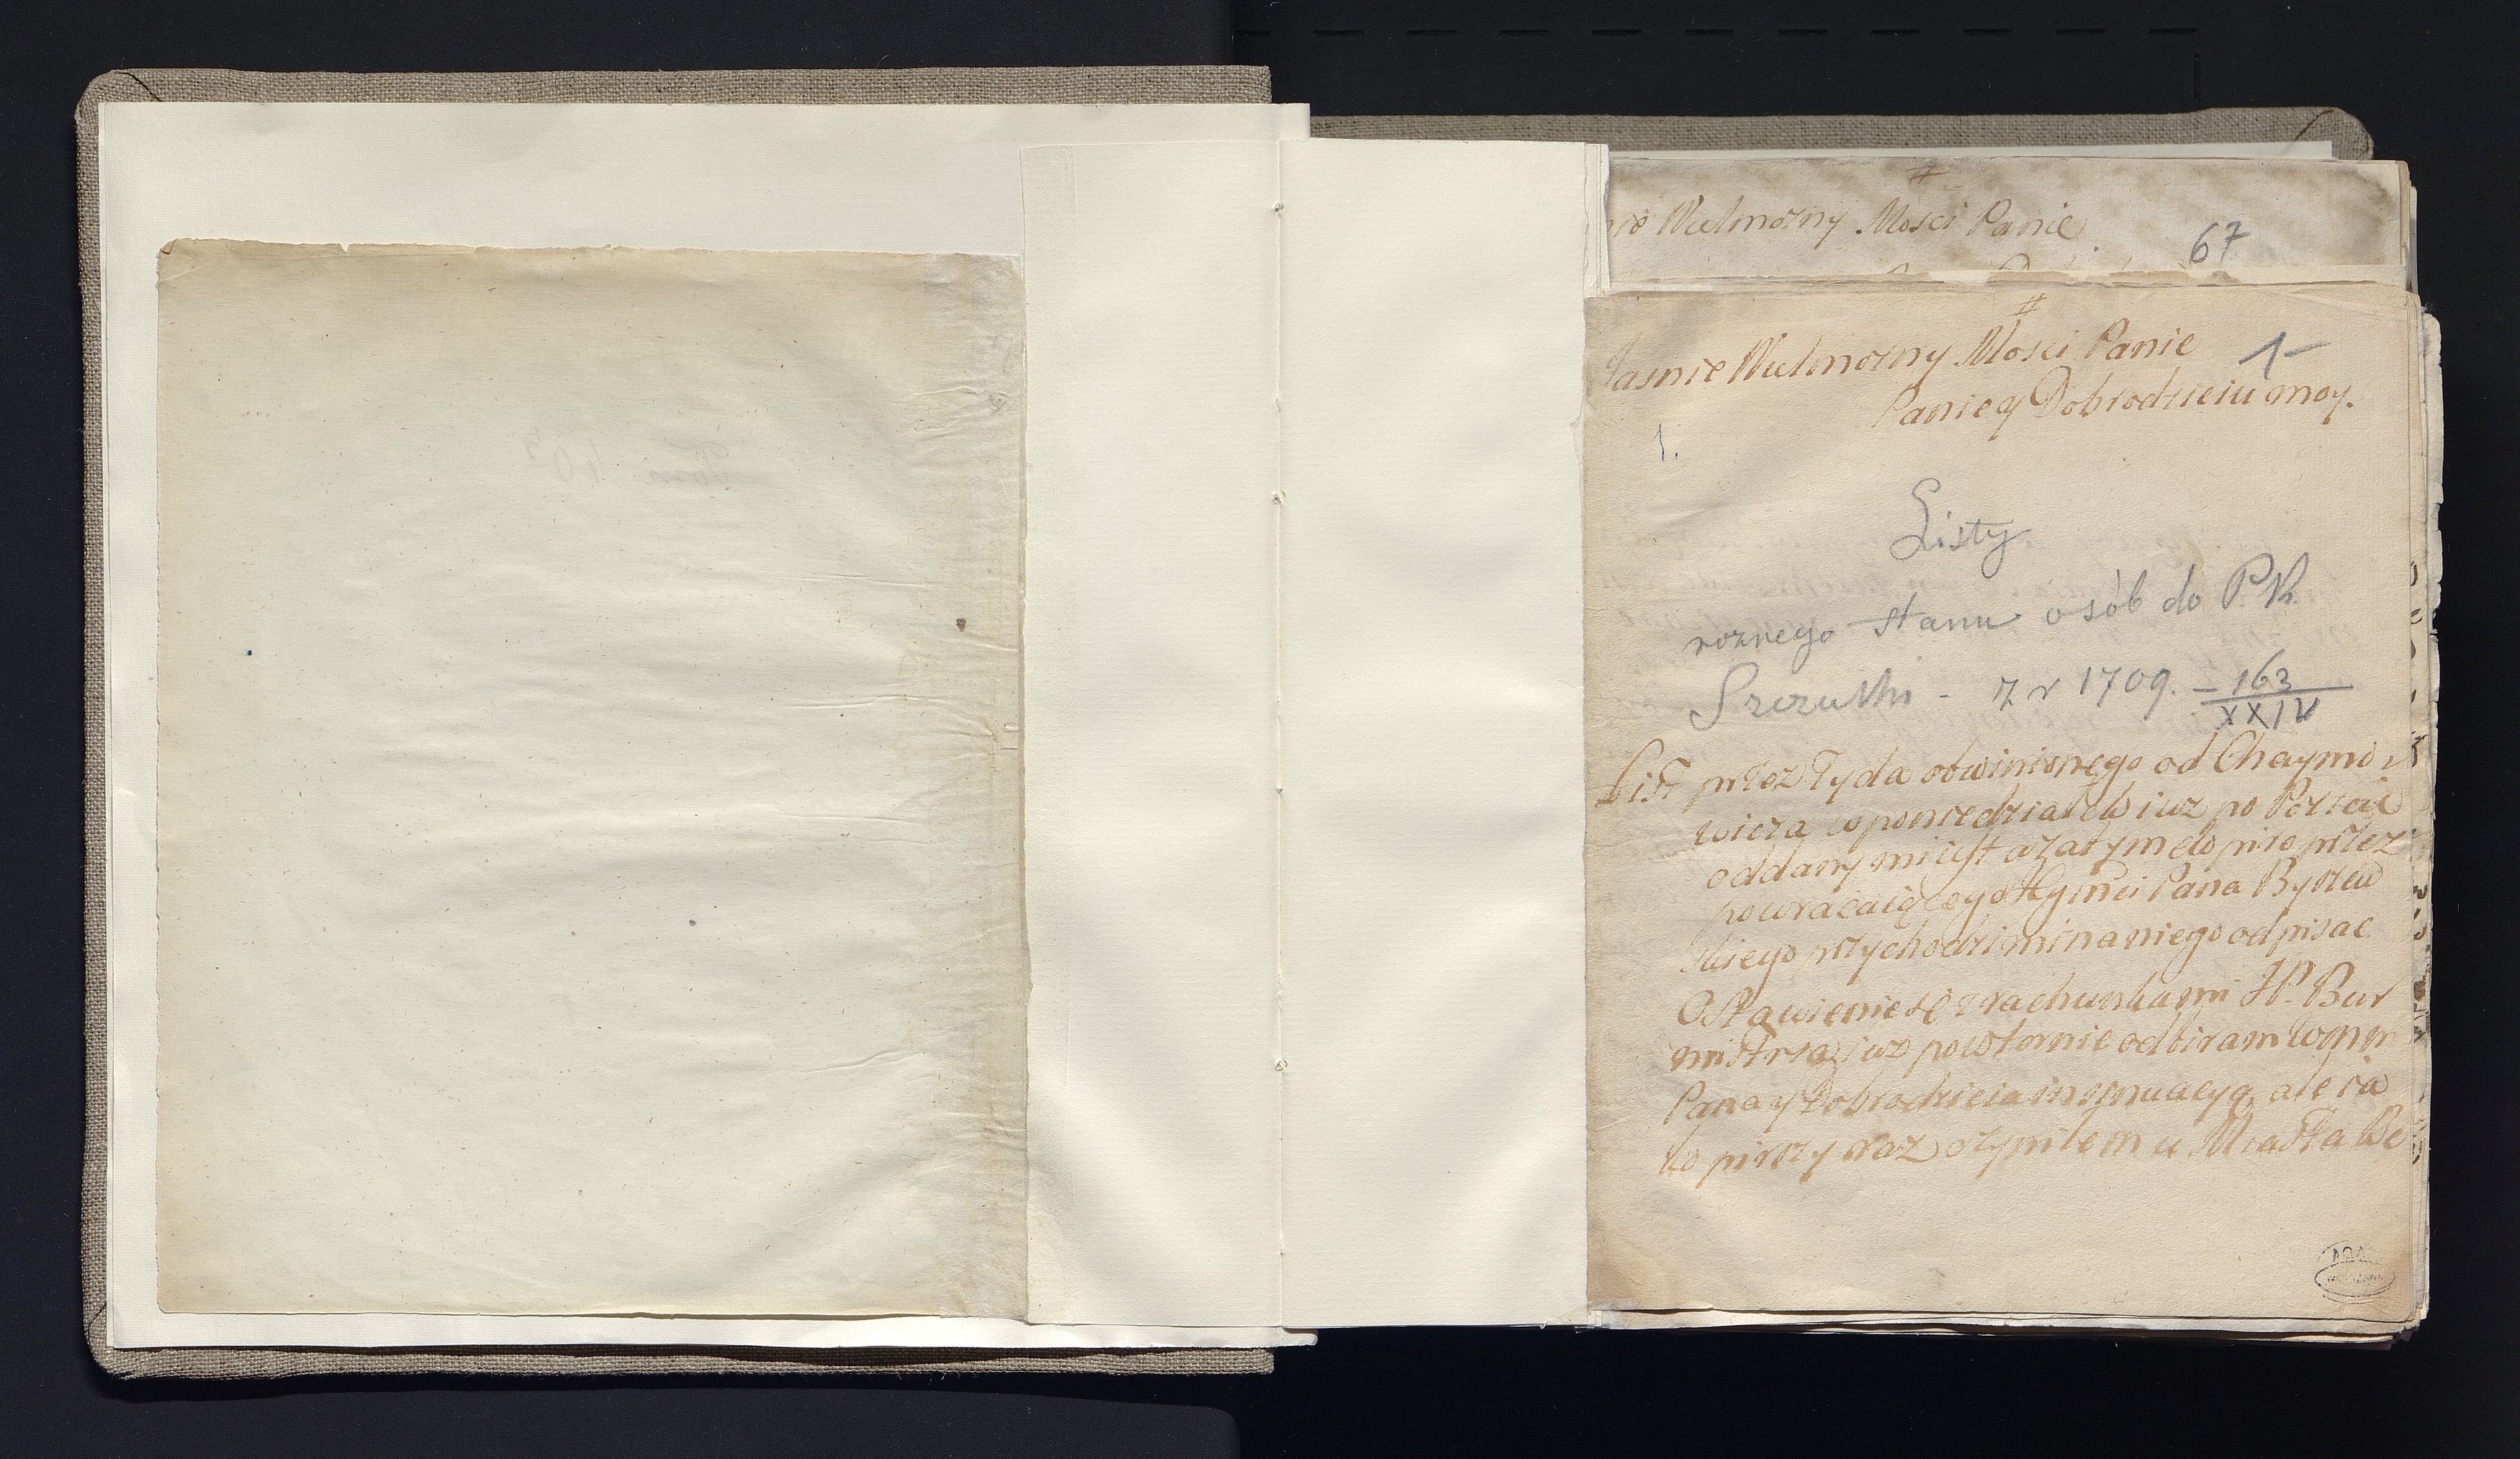 Wielmozny Mosci Panie
67
#
Jasnie Wielmozny Mosci Panie
1
Panie y Dobrodzieiu moy.
1.
Listy
roznego stanu osób do P. K.
Szczuki - z r 1709. - 163
XXIV
List przez Zyda obwinionego od Chaymo
wicza w poniedziałek iuz po Poczcie
oddany mi iest a zatym do piro przez
powracaiącego Jgmci Pana Bystrew
skiego przychodzi mi na niego odpisac
O stawienie się z rachunkami JP. Bur
mistrza iuz powtornie odbiram WMM
Pana y Dobrodzieia insynuacyą, ale ia
za pirszy raz czyniłem u Miasta We
AGAD
WARSZAWA
Tom 103